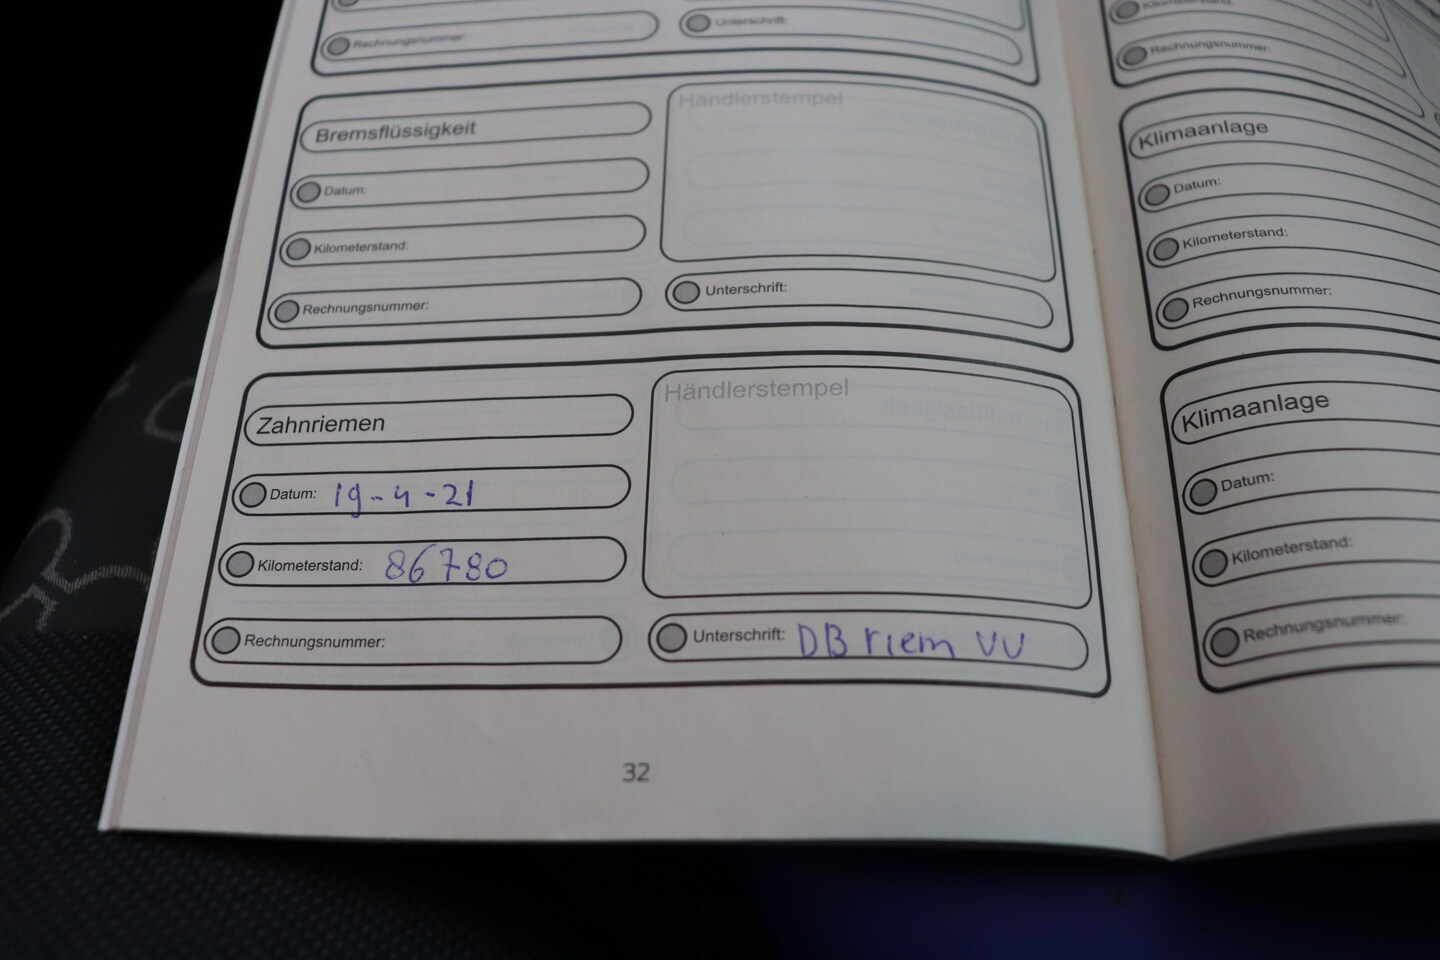 Rechnungsnummer:
Unterschrift:
Bremsflüssigkeit
Händlerstempel
Datum:
Kilometerstand:
Rechnungsnummer:
Unterschrift:
Zahnriemen
Händlerstempel
Datum: 19-4-21
Kilometerstand: 86780
Rechnungsnummer:
Unterschrift: DB riem VV
32
Kilometerstand:
Rechnungsnummer:
Klimaanlage
Datum:
Kilometerstand:
Rechnungsnummer:
Klimaanlage
Datum:
Kilometerstand:
Rechnungsnummer: